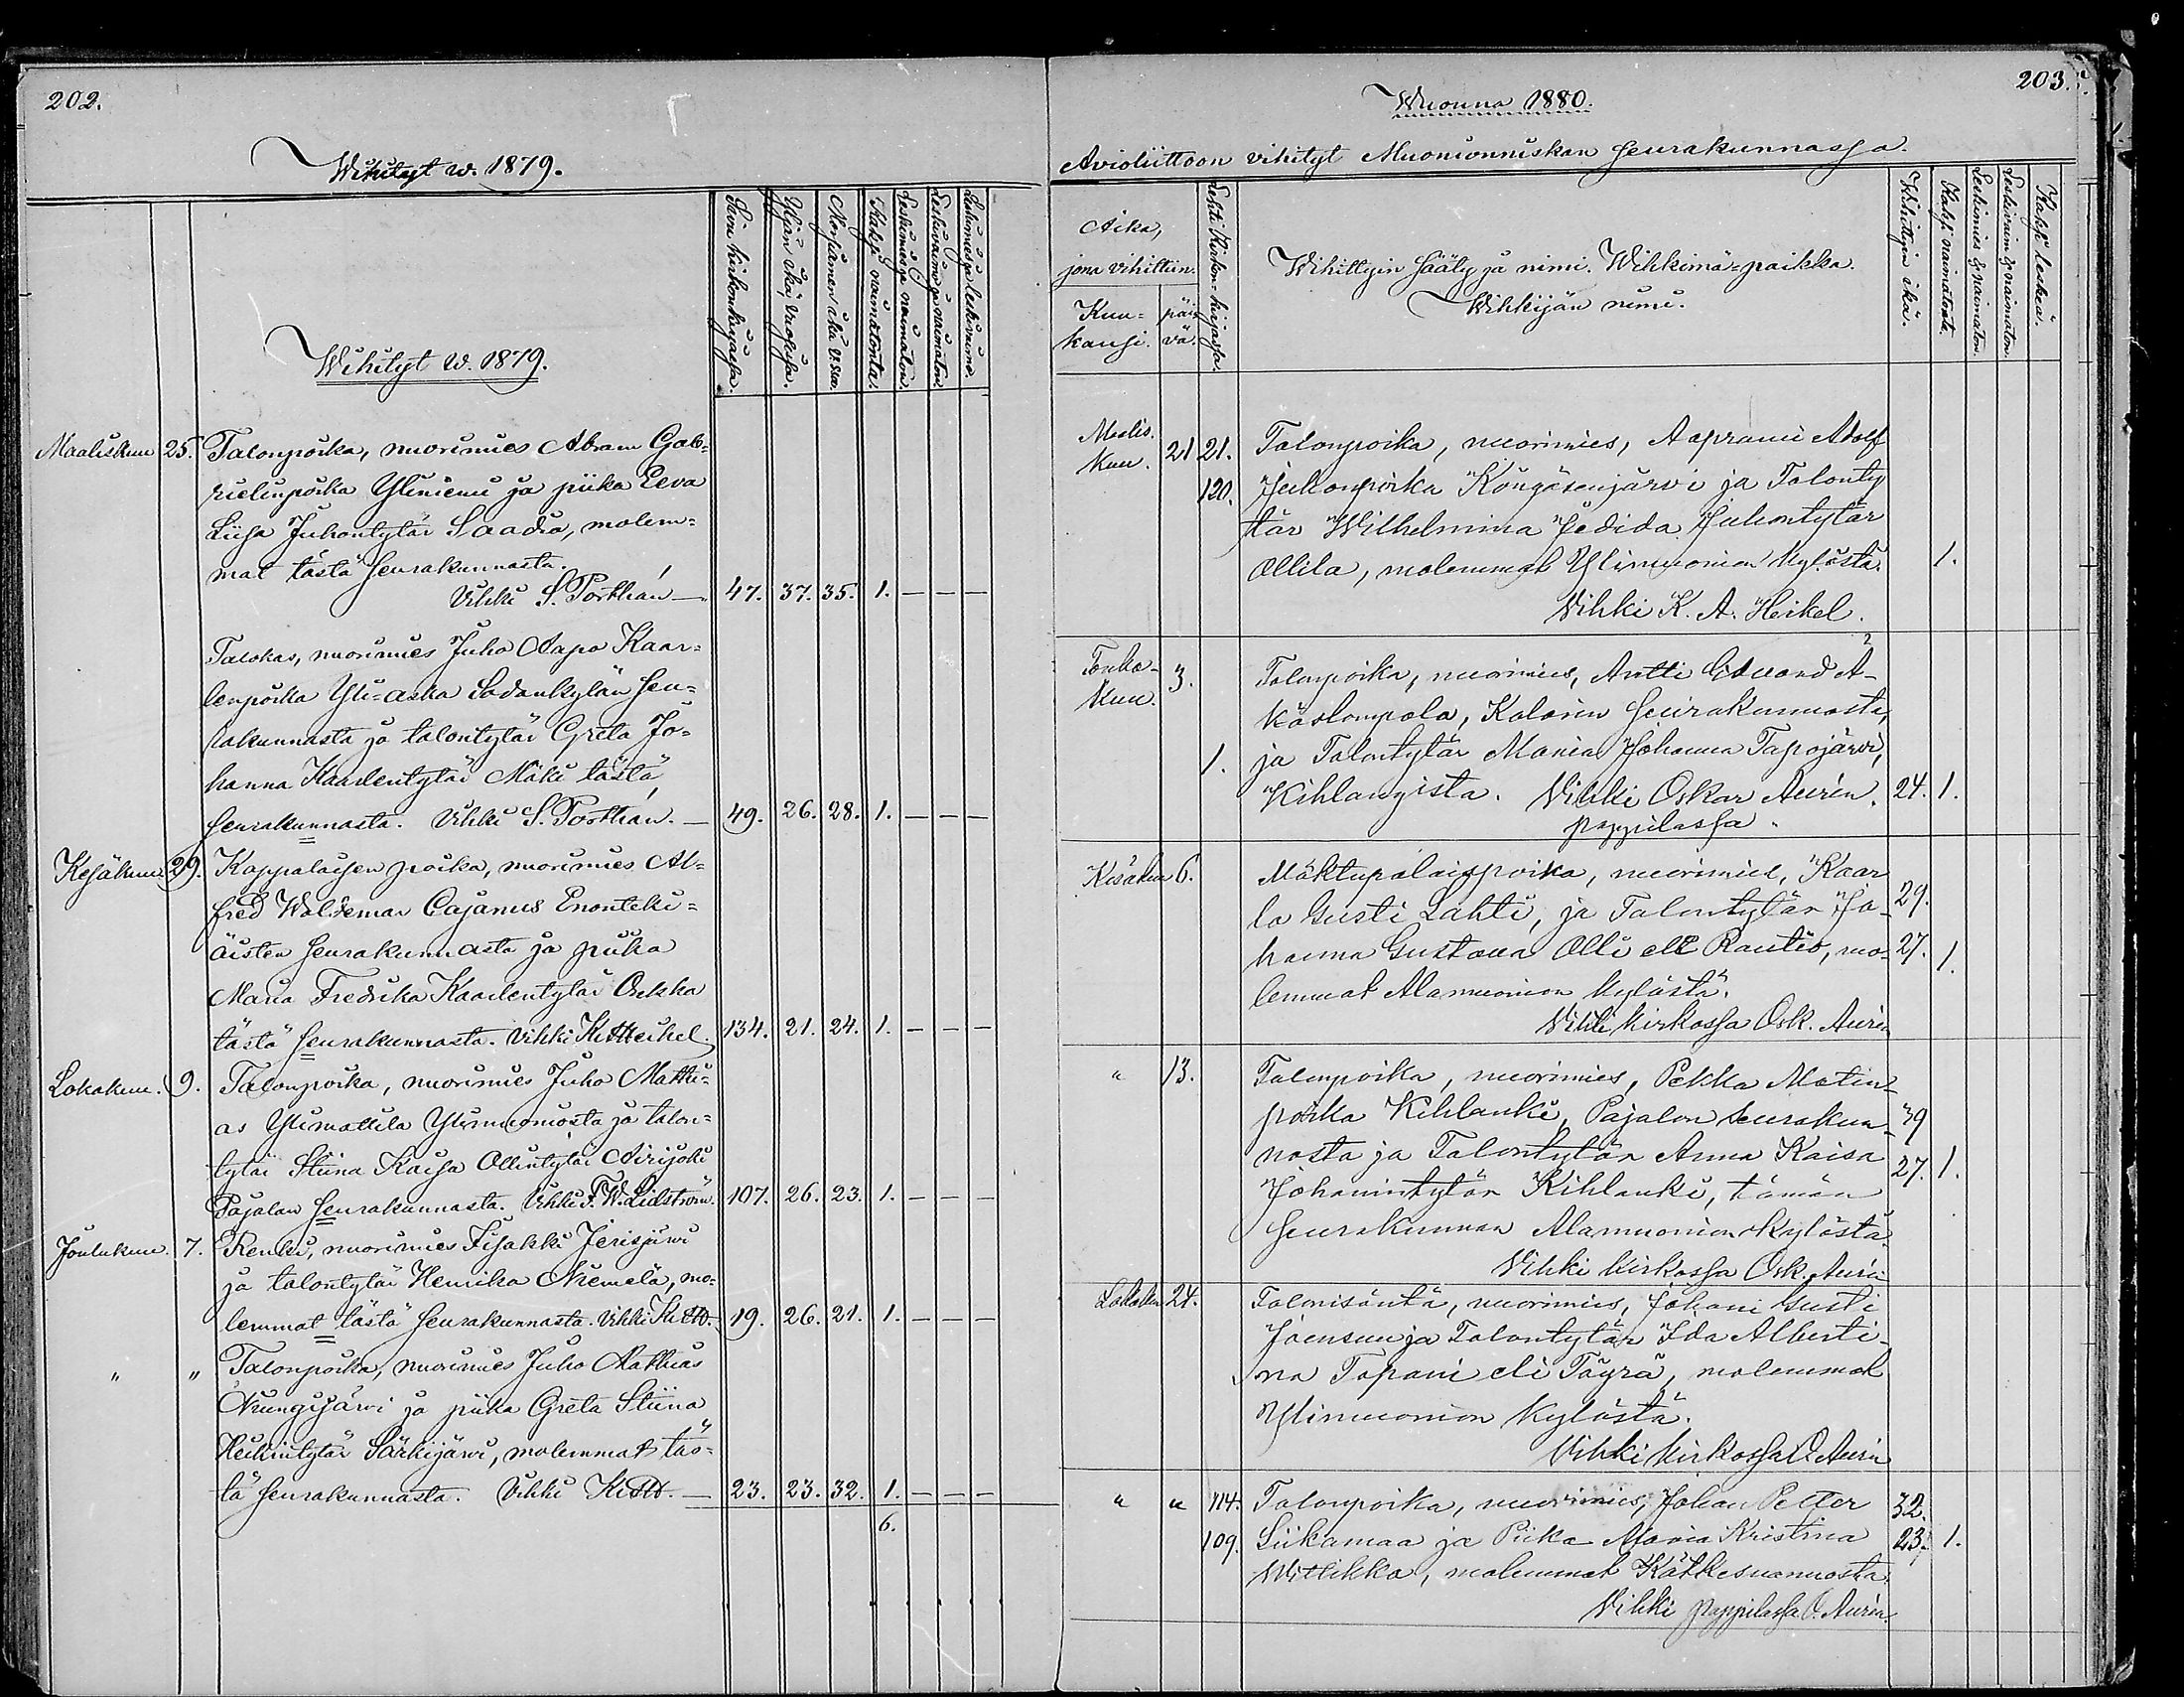 202.
Wihityt w. 1879.
Sivu kirkonkirjassa.
Yljän ikä, vuosissa.
Morsiamen ikä v:ssa.
Kaksi naimatonta.
Leskimies ja naimaton.
Leskivaimo ja naimaton.
Leskimies ja leskivaimo.
Wihityt w. 1879.
Maaliskuu 25. Talonpoika, nuorimies Abram Gab=
rielinpoika Yliniemi ja piika Eeva
Liisa Juhontytär Saadio, molem=
mat tästä seurakunnasta.
Vihki S. Porthán — 47. 37. 35. 1. — — —
Talokas, nuorimies Juho Aapo Kaar=
lenpoika Yli=aska Sodankylän seu=
rakunnasta ja talontytär Greta Jo=
hanna Kaarlentytär Mäki tästä
seurakunnasta. Vihki S. Porthán. — 49. 26. 28. 1. — — —
Kesäkuu. 29. Kappalaisen poika, nuorimies Al=
fred Waldemar Cajanus Enonteki=
äisten seurakunnasta ja piika
Maria Fredrika Kaarlentytär
tästä seurakunnasta. Vihki K.A. Heikel. 134. 21. 24. 1. — — —
Lokakuu. 9. Talonpoika, nuorimies Juho Matti=
as Ylimattila Ylimuoniosta ja talon=
tytär Stiina Kaisa Ollintytär Airijoki
Pajalan seurakunnasta. Vihki F. W. Lidström. 107. 26. 23. 1. — — —
Joulukuu. 7. Renki, nuorimies Fisakki Jerisjärvi
ja talontytär Henrika Niemelä, mo=
lemmat tästä seurakunnasta. Vihki 19. 26. 21. 1. — — —
" " Talonpoika, nuorimies Juho Mathias
ja piika Greta Stiina
Heikintytär Särkijärvi, molemmat täs=
tä seurakunnasta. Vihki — 23. 23. 32. 1. — — —
6.
203.
Wuonna 1880.
Avioliittoon vihityt Muonionniskan seurakunnassa.
Aika,
jona vihittiin.
Kuu=
kausi.
päi=
vä.
Lehti Kirkon=kirjassa.
Wihittyin sääty ja nimi. Wihkimä=paikka.
Wihkijän nimi.
Wihittyin ikä.
Kaksi naimatonta.
Leskimies & naimaton.
Leskivaim. & naimaton.
Kaksi leskeä.
Maalis.
Kuu. 21 21. Talonpoika, nuorimies, Aaprami Adolf
120. Juhonpoika Köngäsenjärvi ja Talonty
tär Wilhelmina Jedida Juhontytär
Ollila, molemmat Ylimuonion Kylästä. 1.
Vihki K. A. Heikel.
Touko-
Kuu. 3. Talonpoika, nuorimies, Antti Eduard A-
käslompola, Kolarin seurakunnasta,
1. ja Talontytär Maria Johanna Tapojärvi,
Kihlangista. Vihki Oskar Aurén. 24. 1.
pappilassa.
Kesäkuu 6. Mäktupalaispoika, nuorimies, Kaar
lo Gusti Lahti, ja Talontytär Jo- 29.
hanna Gustava Olli eli Rautio, mo- 27. 1.
lemmat Alamuonion Kylästä.
Vihki kirkossa Osk. Aurén
" 13. Talonpoika, nuorimies, Pekka Matin-
poika Kihlanki, Pajalan seurakun- 39
nasta ja Talontytär Anna Kaisa 27. 1.
Johanintytär Kihlanki, tämän
seurakunnan Alamuonion Kylästä.
Vihki kirkossa Osk. Aurén
Lokakuu 24. Talonisäntä, nuorimies, Johani Gusti
Joensuu ja Talontytär Ida Alberti-
na Tapani eli Täyrä, molemmat
Ylimuonion Kylästä.
Vihki kirkossa O. Aurén
" " 114. Talonpoika, nuorimies, Johan Petter 32.
109. Liikamaa ja Piika Maria Kristina 23. 1.
Wittikka, molemmat Kätkesuannosta.
Vihki pappilassa O. Aurén.